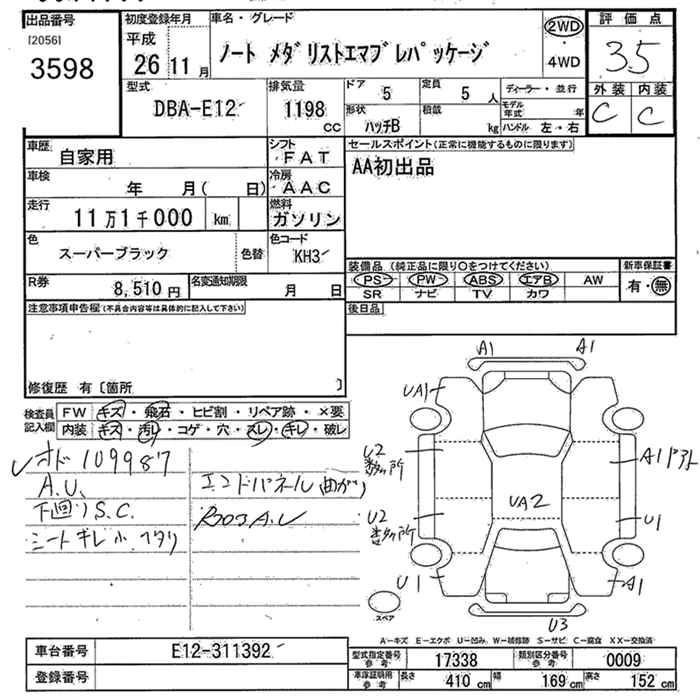 出品番号
[2056]
3598
初度登録年月
平成
26 11 月
車名・グレード
ノート メダリストエマブレパッケージ
2WD
・
4WD
評価点
3.5
外装 内装
C C
型式
DBA-E12
排気量
1198
cc
ドア
5
定員
5 人
形状
ハッチB
積載
kg
ディーラー・並行
モデル年式 年
ハンドル 左・右
車歴
自家用
シフト
FAT
車検
年 月( 日)
冷房
AAC
走行
11万1千000 km
燃料
ガソリン
色
スーパーブラック
色替
色コード
KH3
R券
8,510 円
名変通知期限
月 日
セールスポイント(正常に機能するものに限ります)
AA初出品
装備品(純正品に限り○をつけてください)
PS PW ABS エアB AW
SR ナビ TV カワ
新車保証書
有・無
後日品
注意事項申告欄(不具合内容等は具体的に記入して下さい)
修復歴 有〔箇所 〕
検査員
記入欄
FW キズ・飛石・ヒビ割・リペア跡・×要
内装 キズ・汚レ・コゲ・穴・スレ・キレ・破レ
メオド 109987
A.U.
下回りS.C.
シートキレ小、ヘタリ
エンドパネル曲がり
A1 A1
UA1
U2
A1
U2
U1
UA2
U1
A1
U3
スペア
A-キズ E-エクボ U-凹み W-補修跡 S-サビ C-腐食 XX-交換済
車台番号
E12-311392
登録番号
型式指定番号
参考
17338
類別区分番号
参考
0009
車庫証明用
参考
長さ 410 cm 幅 169 cm 高さ 152 cm